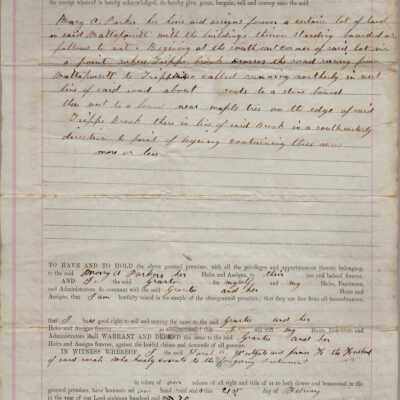 the receipt whereof is hereby acknowledged, do hereby give, grant, bargain, sell and convey unto the said
Mary A. Parker her heirs and assigns forever a certain lot of land
in said Mattapoisett with the buildings thereon standing bounded as
follows to wit: Begining at the south east corner of said lot in
a point where Tripps brook crosses the road running from
Mattapoisett to called running northerly in west
line of said road about rods to a stone bound
thence west to a bound near maple tree on the edge of said
Tripps Brook thence in line of said Brook in a southeasterly
direction to point of begining containing three acres
more or less
TO HAVE AND TO HOLD the above granted premises, with all the privileges and appurtenances thereto belonging,
to the said Mary A Parker her Heirs and Assigns, to their use and behoof forever.
AND I the Grantor for myself and my Heirs, Executors,
and Administrators, do covenant with the said Grantee and her Heirs and
Assigns, that I am lawfully seized in fee simple of the aforegranted premises; that they are free from all incumbrances,
that I have good right to sell and convey the same to the said Grantee and her
Heirs and Assigns forever as aforesaid; and that I will and my Heirs, Executors, and
Administrators shall WARRANT AND DEFEND the same to the said Grantee and her
Heirs and Assigns forever, against the lawful claims and demands of all persons.
IN WITNESS WHEREOF, I the said and James H. the Husband
of said who hereby assents to the foregoing Instrument
in token of our release of all right and title of or to both dower and homestead in the
granted premises, have hereunto set our hand and seal this 21st day of
in the year of our Lord eighteen hundred and